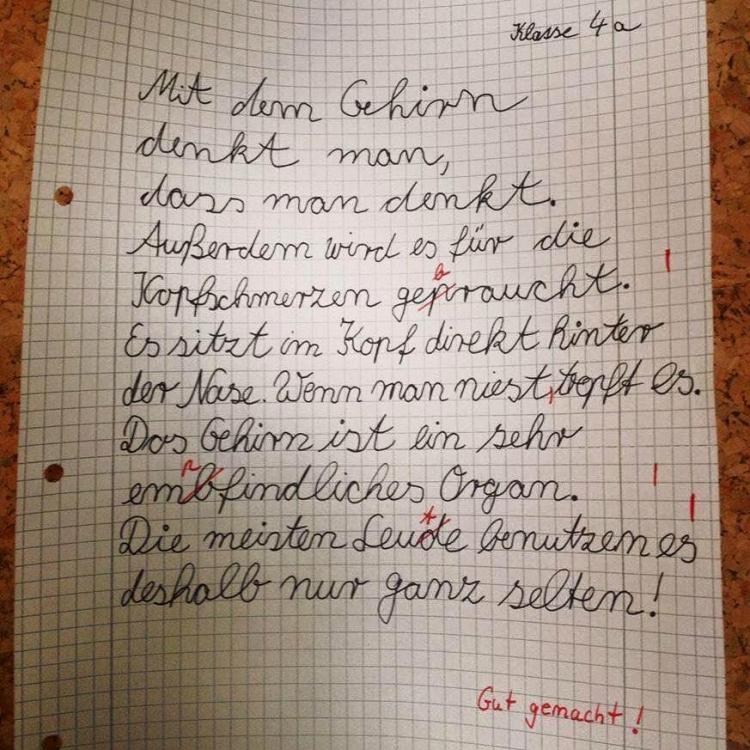 Klasse 4a
Mit dem Gehirn
denkt man,
dass man denkt.
Außerdem wird es für die
Kopfschmerzen gepraucht.
b
Es sitzt im Kopf direkt hinter
der Nase. Wenn man niest, tropft es.
Das Gehirn ist ein sehr
p
embfindliches Organ.
t
Die meisten Leude benutzen es
deshalb nur ganz selten!
Gut gemacht!